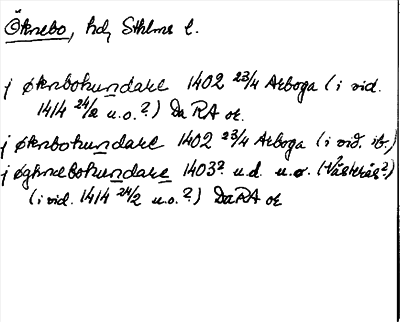 Öknebo, hd, Sthlms l.
j øknbohundare 1402 23/4 Arboga (i vid.
1414 24/2 u.o.?) DaRA or.
j øknbohundare 1402 23/4 Arboga (i vid. ib.)
j øghnebohundare 1403? u.d. u.o. (Västerås?)
(i vid. 1414 24/2 u.o.?) DaRA or